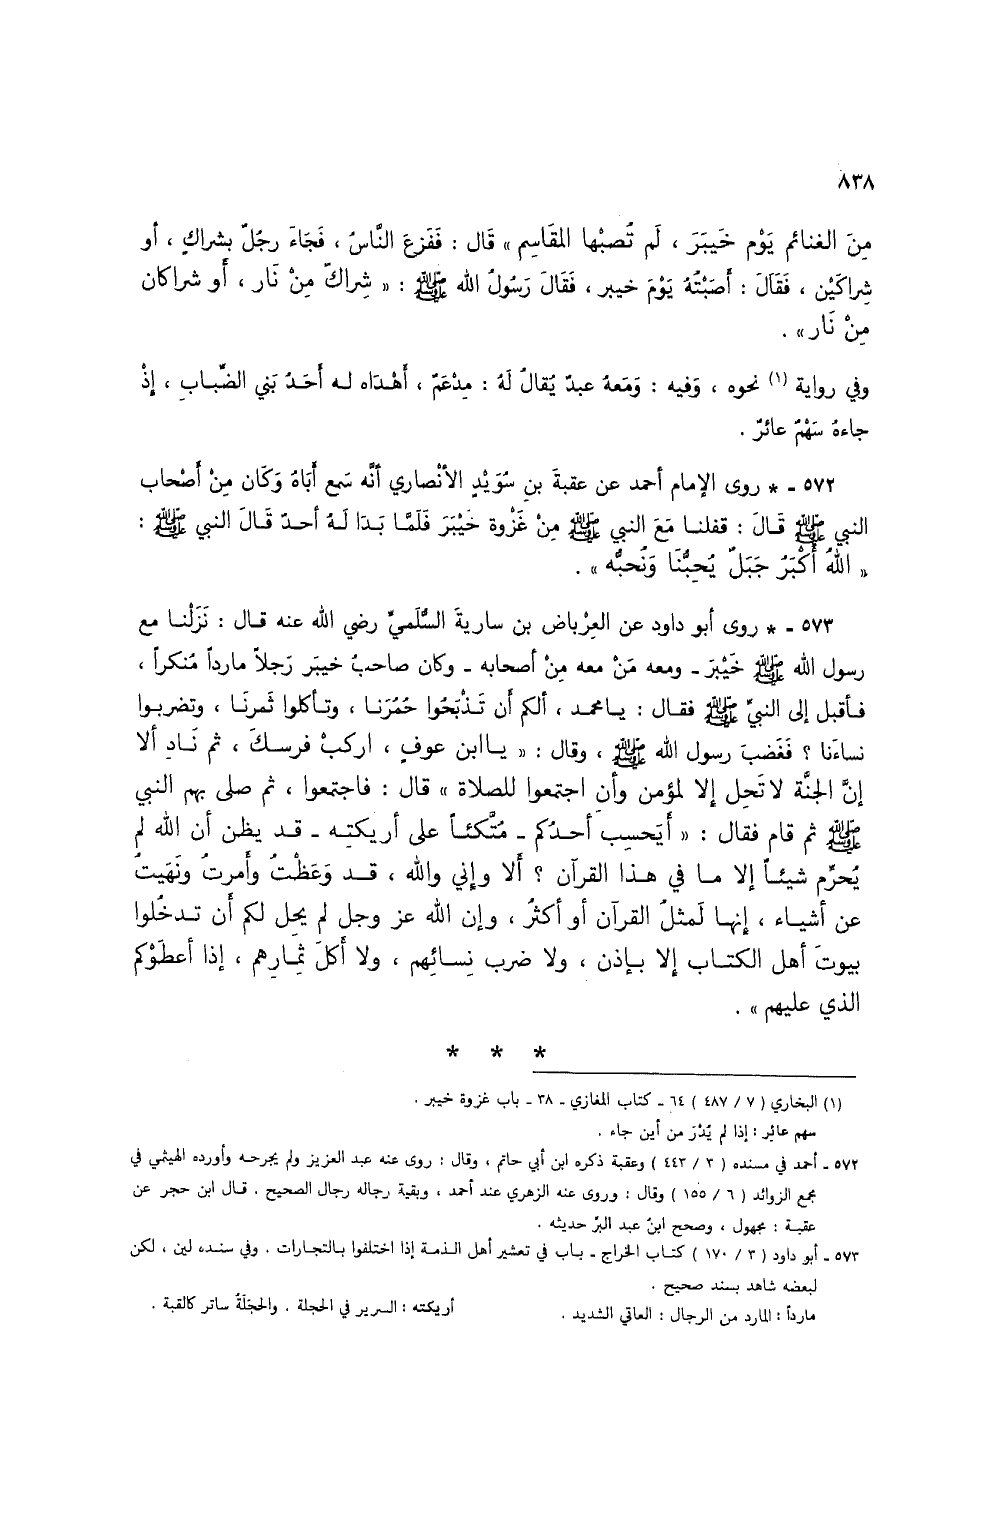 ٨٣٨
مِنَ الغنائم يَوْم خَيبَرَ ، لَم تُصبْها المقَاسِم » قَال : فَفَزعَ النَّاسُ ، فَجَاءَ رجُلٌ بِشراكٍ ، أو
شِراكَيْن ، فَقَالَ : أصَبْتُهُ يَوْمَ خيبر ، فَقَالَ رَسُولُ الله ﷺ : « شِراكٌ مِنْ نَار ، أو شراكان
مِنْ نَار » .
وفي رواية (١) نحوه ، وَفيه : وَمَعهُ عبدٌ يُقالُ لَهُ : مِدْعَمٌ ، أهْداه له أحَدُ بَني الضِّباب ، إذْ
جاءهُ سَهْمٌ عائرٌ .
٥٧٢ - * روى الإمام أحمد عن عقبةَ بنِ سُوَيْدٍ الأنْصاري أنَّه سَمِع أبَاهُ وَكَان مِنْ أصْحاب
النبي ﷺ قَالَ : قفلنا مَعَ النبي ﷺ مِنْ غَزْوة خَيْبَرَ فَلَمَّا بَدَا لَهُ أحدٌ قَالَ النبي ﷺ :
« اللهُ أكْبَرُ جَبَلٌ يُحِبُّنَا وَنُحبُّه » .
٥٧٣ - * روى أبو داود عن العِرْباض بن ساريةَ السُّلَميِّ رضي الله عنه قال : نَزَلْنا مع
رسول الله ﷺ خَيْبَرَ - ومعه مَنْ معه مِنْ أصحابه - وكان صاحبُ خيبَر رَجلاً مارداً مُنكراً ،
فأقبل إلى النبيِّ ﷺ فقال : يامحمد ، ألكم أن تَذْبَحُوا حُمُرَنا ، وتأكلوا ثَمرنَا ، وتضربوا
نساءَنا ؟ فَغَضبَ رسول الله ﷺ ، وقال : « ياابن عوفٍ ، اركبْ فرسكَ ، ثم نَادِ ألا
إنَّ الجنَّة لاتَحِل إلا لمؤمن وأن اجتمعوا للصلاة » قال : فاجتمعوا ، ثم صلى بهم النبي
ﷺ ثم قام فقال : « أيَحسِب أحدُكم - مُتَّكئاً على أريكتِه - قد يظن أن الله لم
يُحرِّم شيئاً إلا ما في هذا القرآن ؟ ألا وإني والله ، قد وَعَظْتُ وأمرتُ ونَهَيتُ
عن أشياء ، إنها لَمثلُ القرآن أو أكثرُ ، وإن الله عز وجل لم يحِل لكم أن تدخُلوا
بيوتَ أهل الكتاب إلا بإذن ، ولا ضرب نِسائِهم ، ولا أكلَ ثِمارِهم ، إذا أعطَوْكم
الذي عليهم » .
* * *
(١) البخاري ( ٧ / ٤٨٧ ) ٦٤ - كتاب المغازي - ٣٨ - باب غزوة خيبر .
سهم عائِر : إذا لم يُدْرَ من أين جاء .
٥٧٢ - أحمد في مسنده ( ٣ / ٤٤٣ ) وعقبة ذكره ابن أبي حاتم ، وقال : روى عنه عبد العزيز ولم يجرحه وأورده الهيثمي في
مجمع الزوائد ( ٦ / ١٥٥ ) وقال : وروى عنه الزهري عند أحمد ، وبقية رجاله رجال الصحيح . قال ابن حجر عن
عقبة : مجهول ، وصحح ابنُ عبد البرِّ حديثه .
٥٧٣ - أبو داود ( ٣ / ١٧٠ ) كتاب الخراج - باب في تعشير أهل الذمة إذا اختلفوا بالتجارات . وفي سنده لين ، لكن
لبعضه شاهد بسند صحيح .
مارداً : المارد من الرجال : العاقي الشديد . أريكته : السرير في الحجلة . والحجَلَةُ ساتر كالقبة .